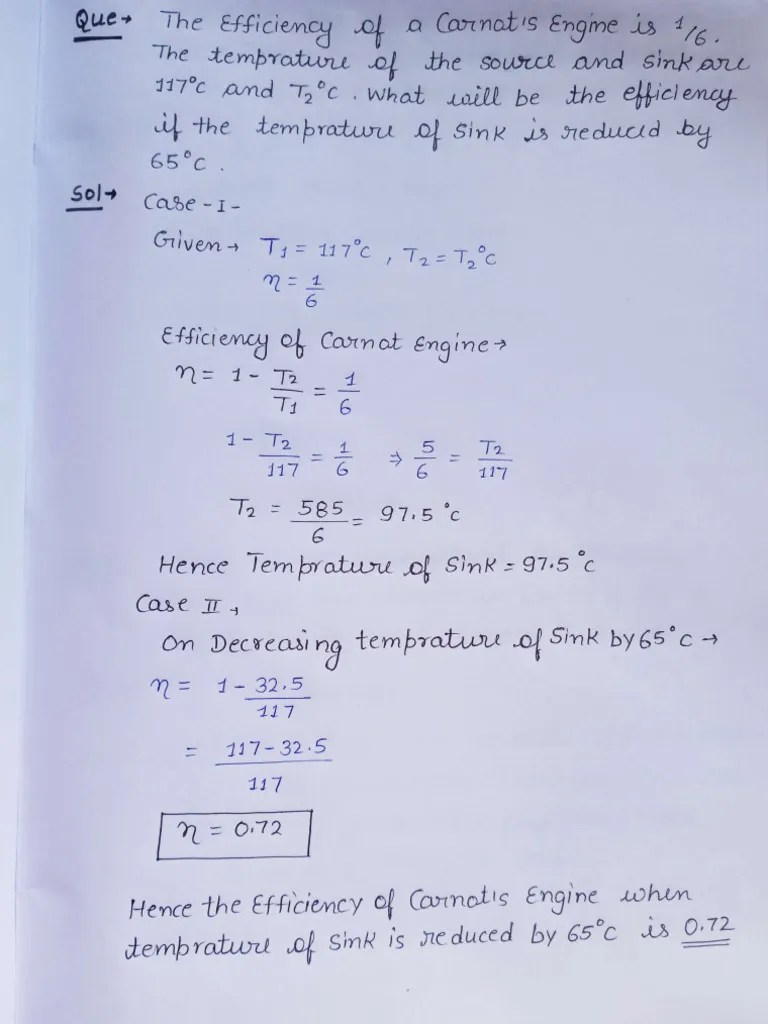 Que → The Efficiency of a Carnat's Engine is 1/6.
The temprature of the source and sink are
117°C and T₂°C. What will be the efficiency
if the temprature of sink is reduced by
65°C.
Sol → Case - I -
Given → T₁ = 117°C, T₂ = T₂°C
η = 1/6
Efficiency of Carnat Engine →
η = 1 - T₂/T₁ = 1/6
1 - T₂/117 = 1/6 ⇒ 5/6 = T₂/117
T₂ = 585/6 = 97.5 °C
Hence Temprature of Sink = 97.5°C
Case II →
On Decreasing temprature of Sink by 65°C →
η = 1 - 32.5/117
= 117 - 32.5/117
η = 0.72
Hence the Efficiency of Carnat's Engine when
temprature of sink is reduced by 65°C is 0.72